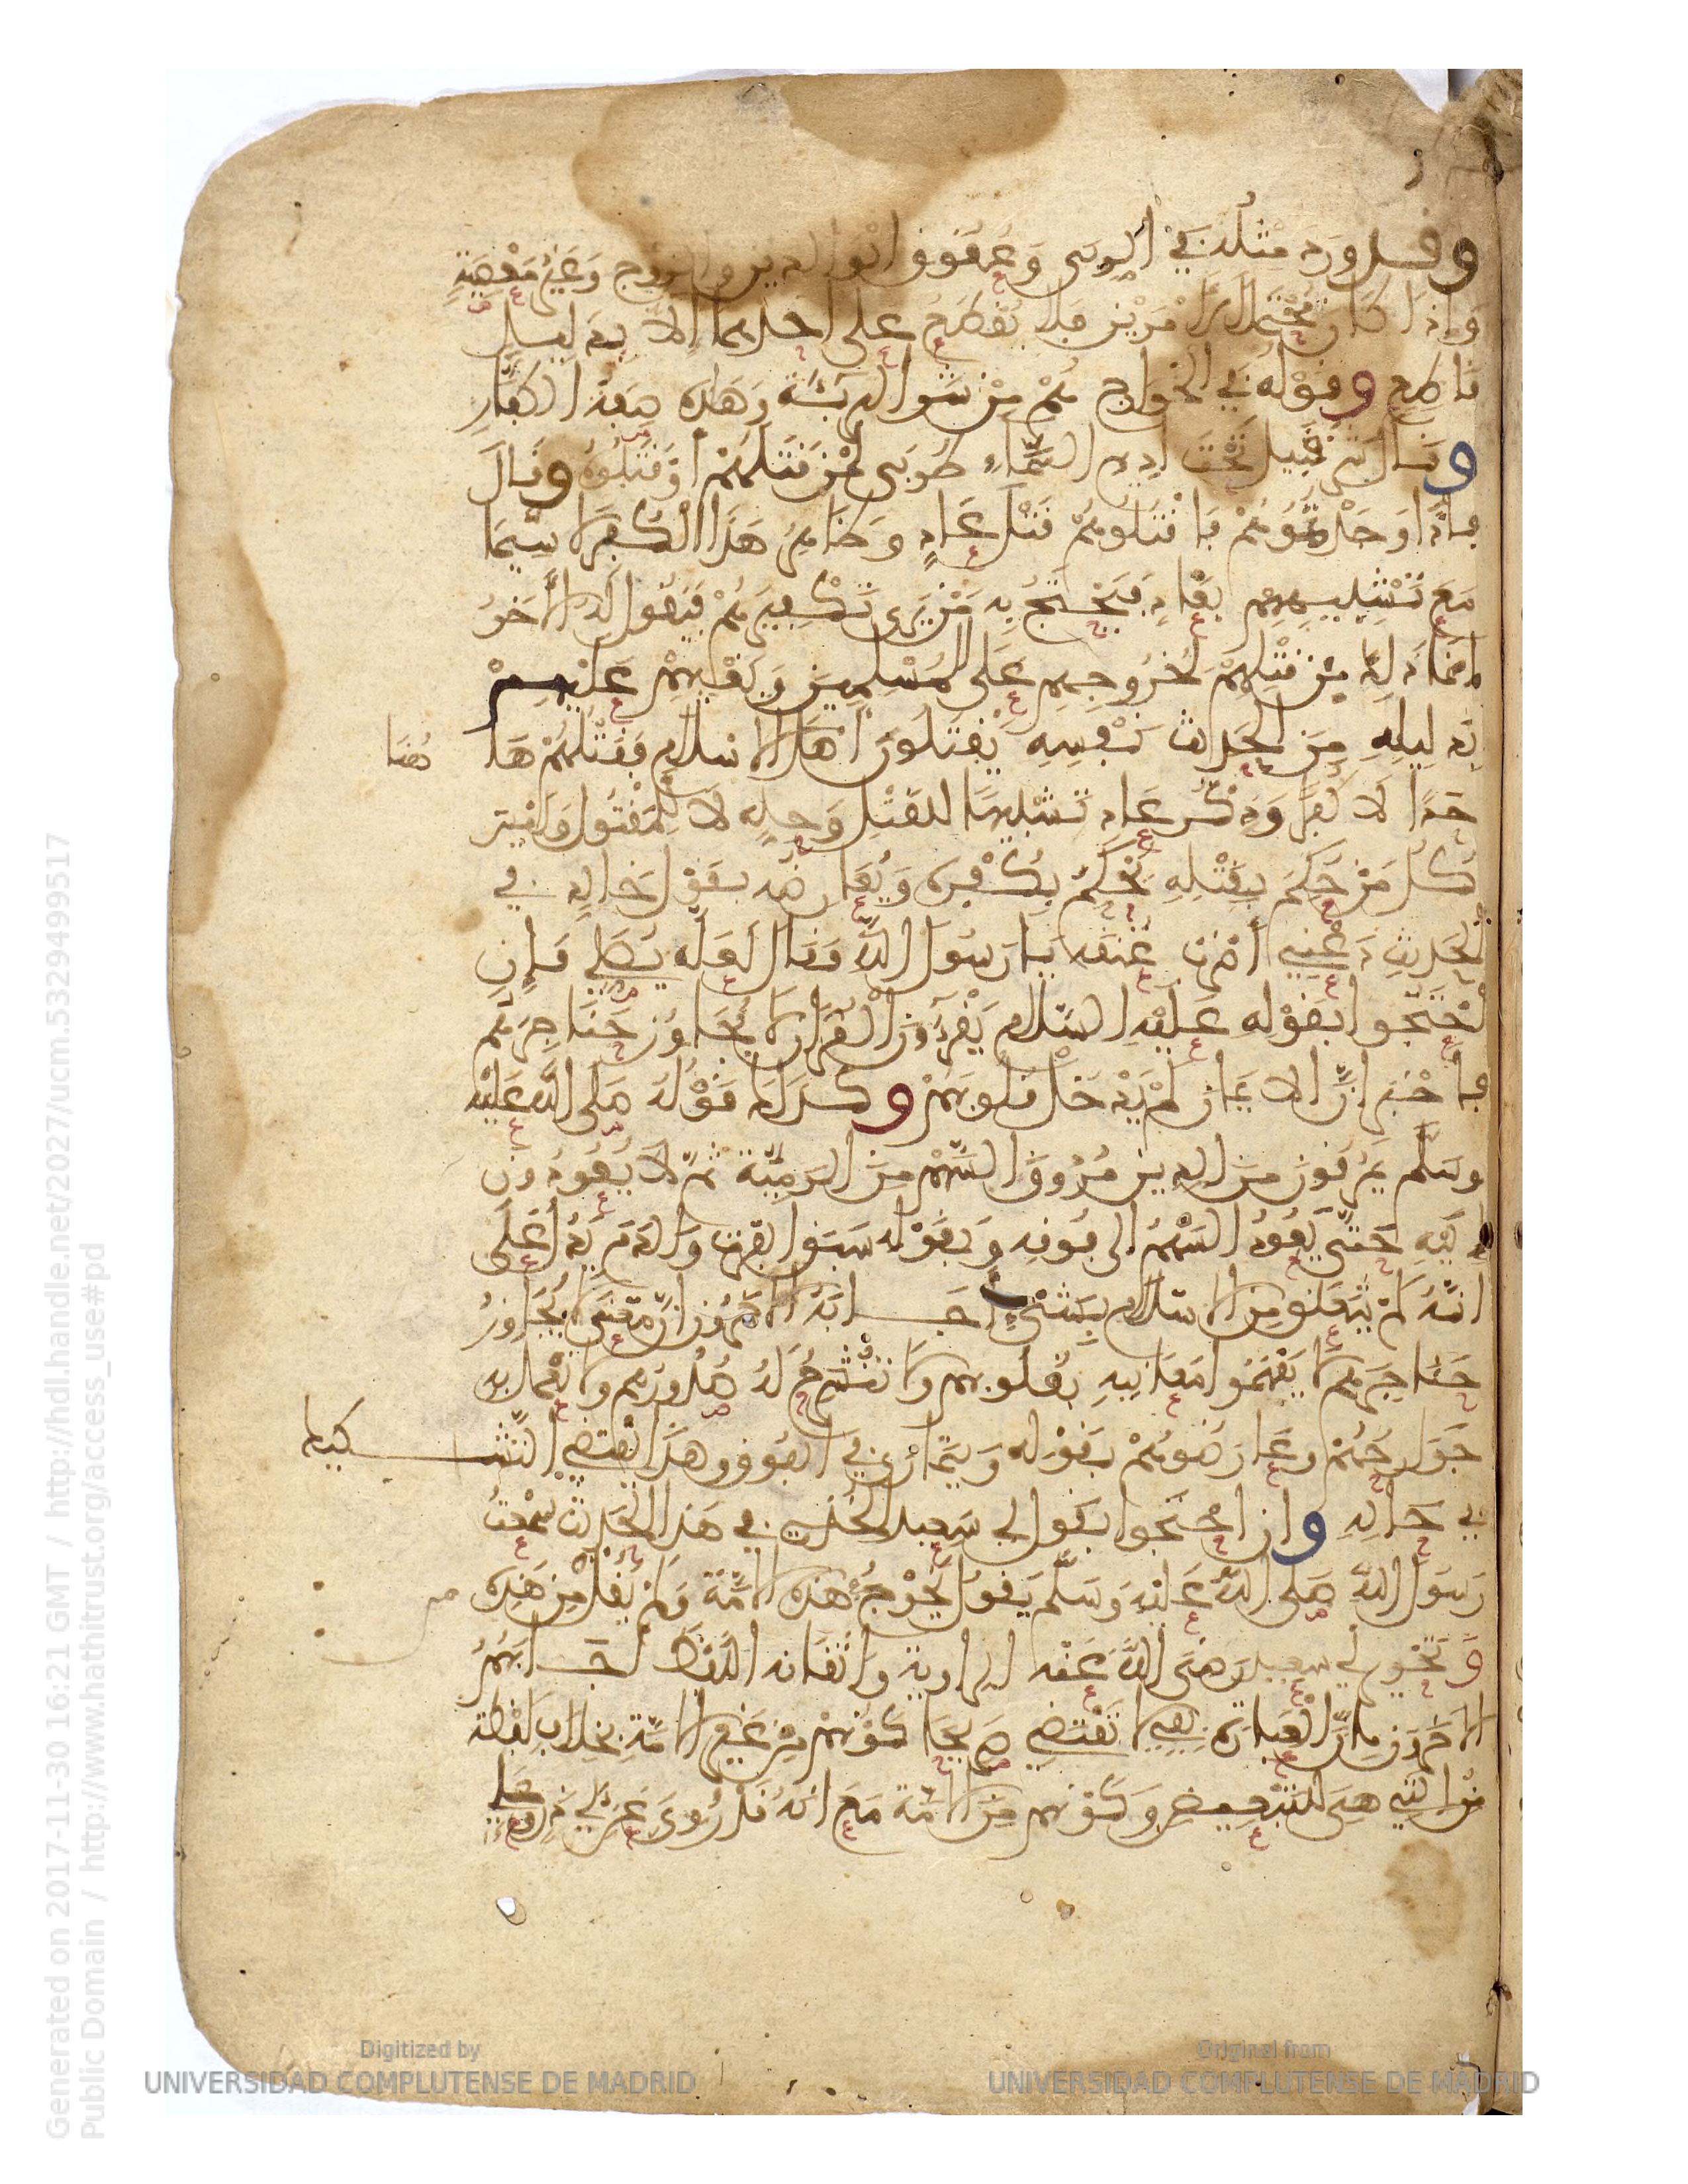 وقد ورد مثله في الربى وعقوق الوالدين والزوج وغير معصية
وإذا كان محتملا لأمرين فلا يقطع على أحدهما إلا بدليل
قاطع وقوله في الخوارج هم من شر البرية وهذه صفة الكفار
وقال شر قبيل تحت أديم السماء طوبى لمن قتلهم أو قتلوه وقال
فإذا وجدتموهم فاقتلوهم قتل عاد وظاهر هذا الكفر لا سيما
مع تشبيههم بعاد فيحتج به من يرى تكفيرهم فيقول له الآخر
إنما ذلك من قتلهم لخروجهم على المسلمين وبغيهم عليهم
بدليله من الحديث نفسه يقتلون أهل الاسلام فقتلهم ها هنا
حدا لا كفرا وذكر عاد تشبيها للقتل وحله لا للمقتول وليس
كل من حكم بقتله يحكم بكفره ويعارضه بقول خالد في
الحديث دعني أضرب عنقه يا رسول الله فقال لعله يصلي فإن
احتجوا بقوله عليه السلام يقرءون القرءان لا يجاوز حناجرهم
فأخبر أن الايمان لم يدخل قلوبهم وكذلك قوله صلى الله عليه
وسلم يمرقون من الدين مروق السهم من الرمية ثم لا يعودون
إليه حتى يعود السهم الى فوقه وبقوله سبق الفرث والدم يدل على
انه لم يتعلق من الاسلام بشيء أجابه الآخرون أن معنى لا يجاوز
حناجرهم لا يفهموا معانيه بقلوبهم ولا تنشرح له صدورهم ولا تعمل به
جوارحهم وعارضوهم بقوله ويتمارى في الفوق وهذا يقتضي التشكيك
في حاله وان احتجوا بقول أبي سعيد الخدري في هذا الحديث سمعت
رسول الله صلى الله عليه وسلم يقول يخرج في هذه الأمة ولم يقل من هذه
وتحرير أبي سعيد رضي الله عنه الرواية واتقانه اللفظ أجابهم
الآخرون بأن العبارة بفي لا تقتضي صريحا كونهم من غير الأمة بخلاف لفظة
من التي هي للتبعيض وكونهم من الأمة مع انه قد روي عن أبي ذر وعلي